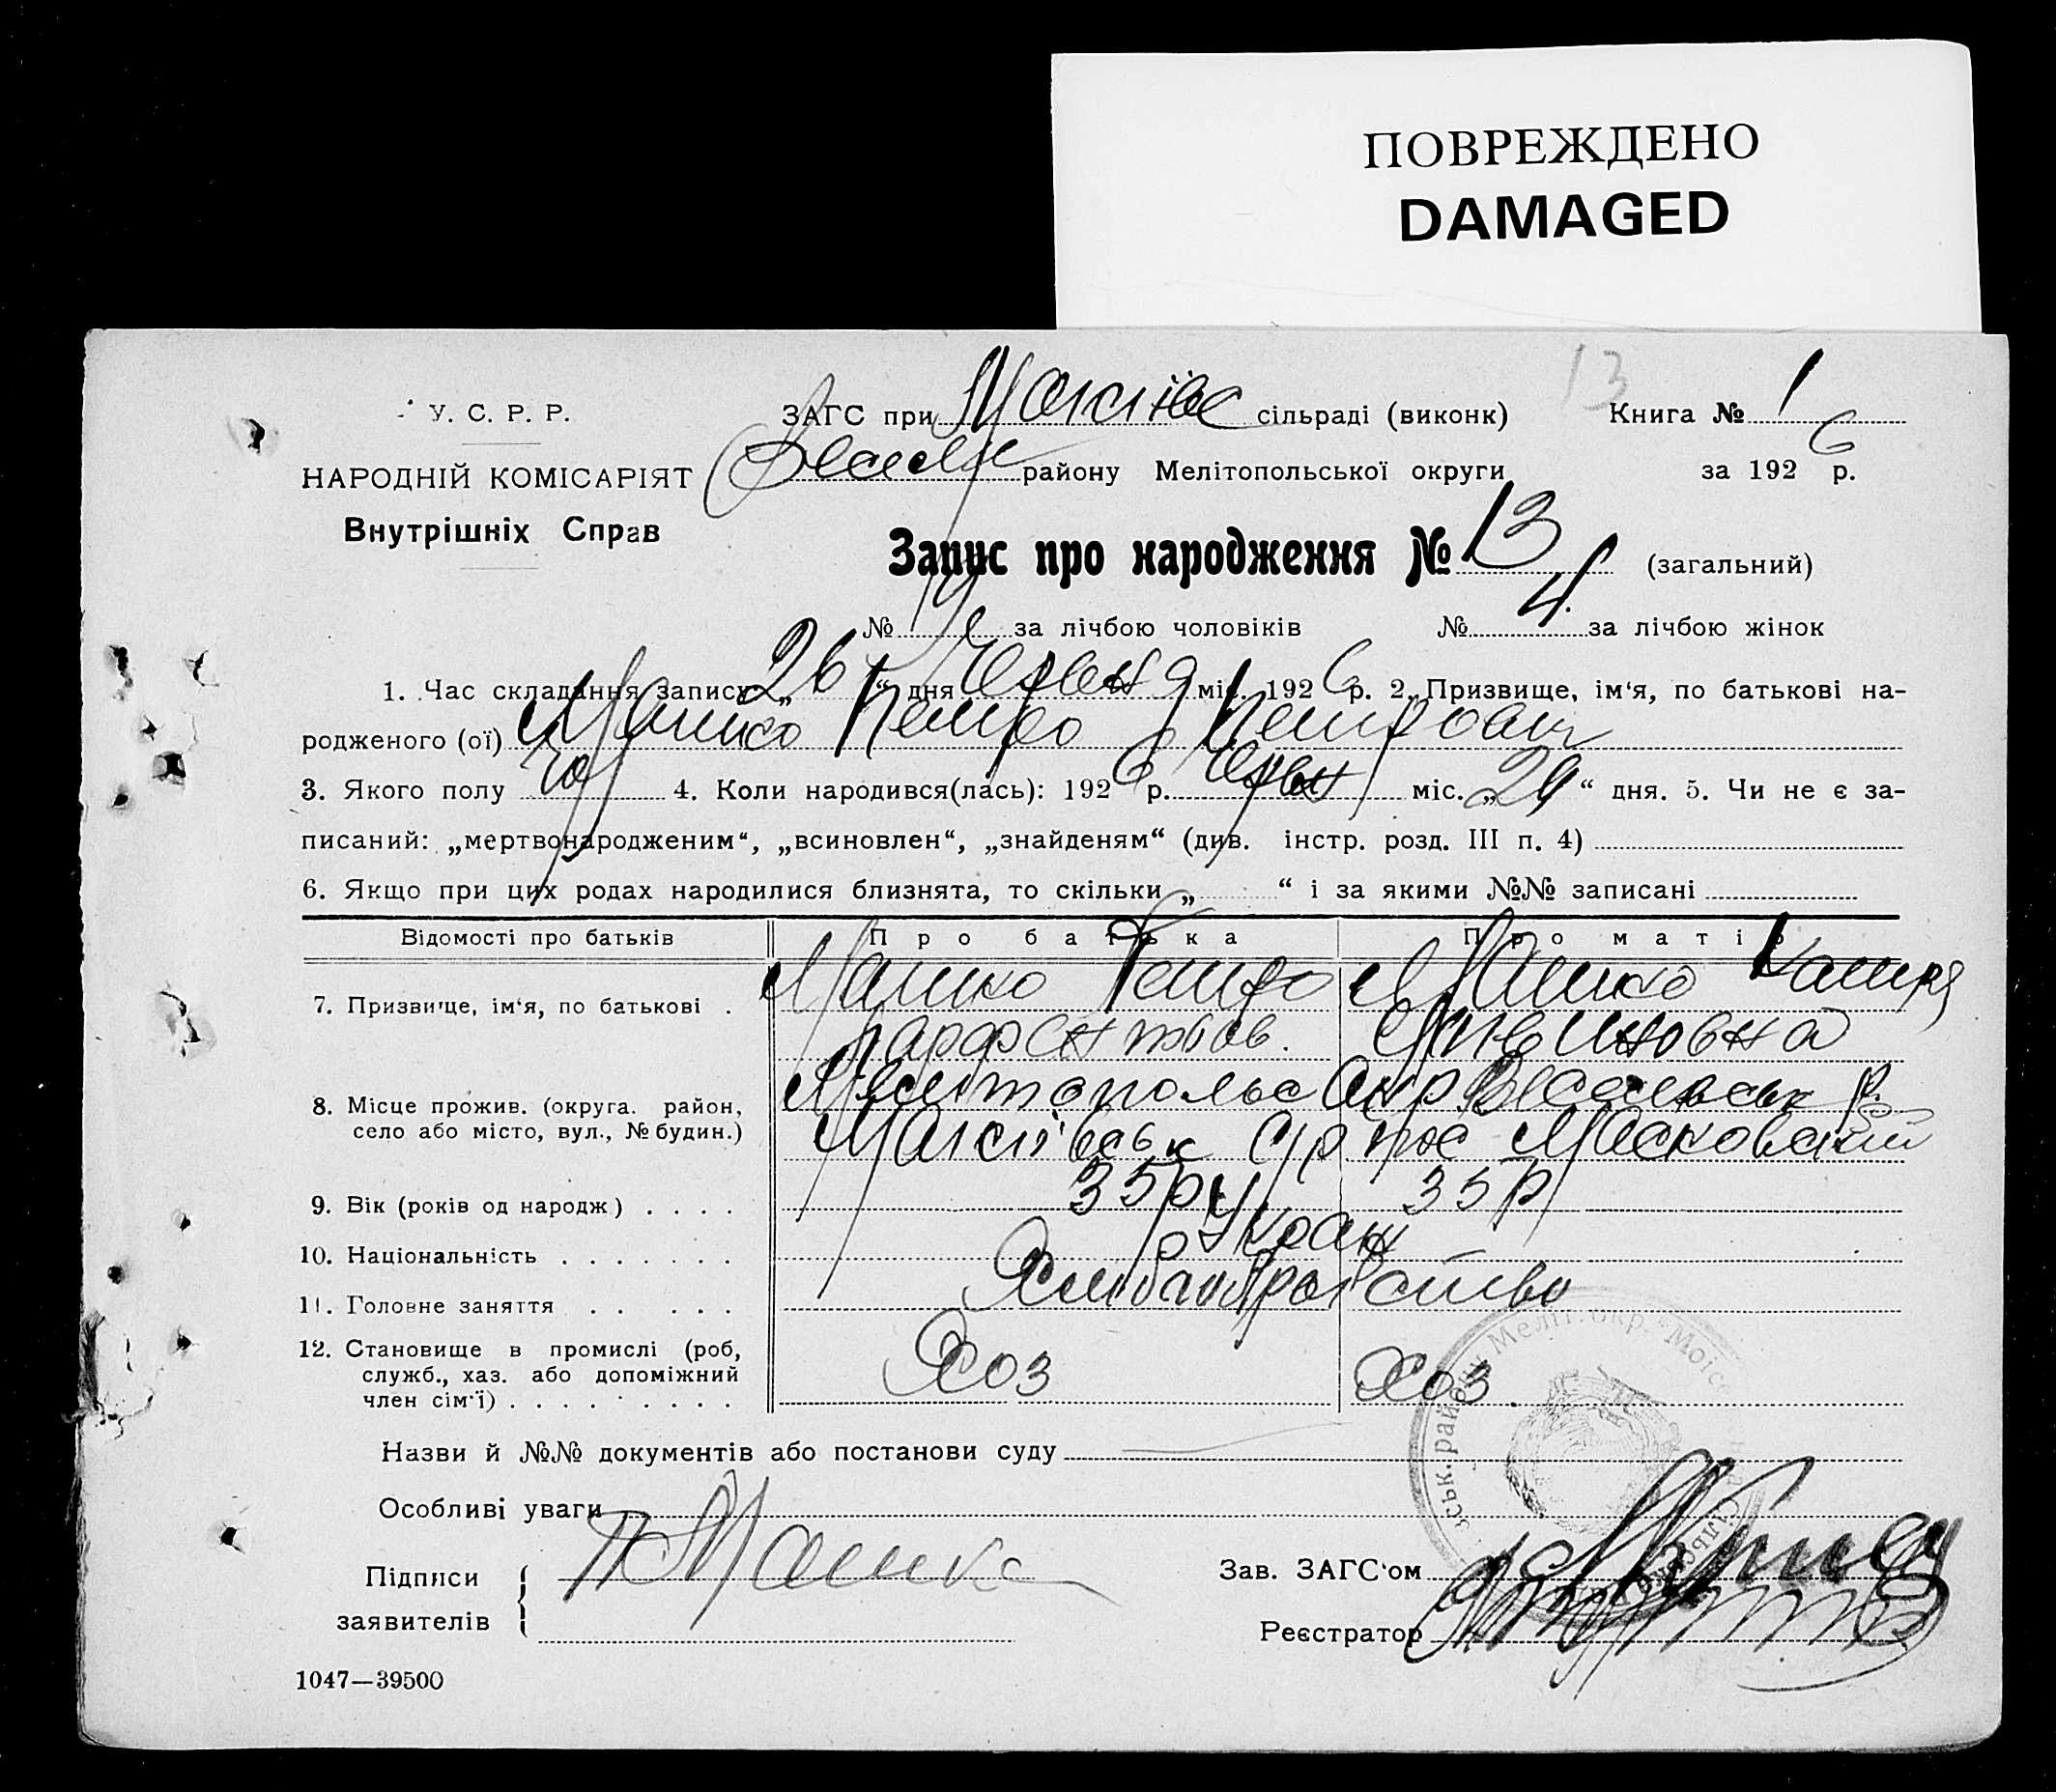 ПОВРЕЖДЕНО
DAMAGED
13
У. С. Р. Р.
ЗАГС при сільраді (виконк)
Книга № 1
НАРОДНІЙ КОМІСАРІЯТ
Внутрішніх Справ
району Мелітопольської округи
за 1926 р.
Запис про народження № 13 (загальний)
№ за лічбою чоловіків № 4 за лічбою жінок
1. Час складання запису „26“ дня Червня міс. 1926 р. 2. Призвище, ім‘я, по батькові на-
родженого (ої) Машко Петро Петрович
3. Якого полу чол 4. Коли народився(лась): 1926 р. Червн міс. „24“ дня. 5. Чи не є за-
писаний: „мертвонародженим“, „всиновлен“, „знайденям“ (див. інстр. розд. III п. 4)
6. Якщо при цих родах народилися близнята, то скільки „ “ і за якими №№ записані
Відомості про батьків
Про батька
Про матір
7. Призвище, ім‘я, по батькові .
Машко Петро
Парфентьев.
Машко Катря
8. Місце прожив. (округа. район,
село або місто, вул., № будин.)
Мелітопольс Окр. Веселівськ р.
9. Вік (років од народж) . . . .
35 р
35 р
10. Національність . . . . . . .
Укран
11. Головне заняття . . . . .
Хліборобство
12. Становище в промислі (роб,
служб., хаз. або допоміжний
член сім‘ї) . . . . . . . . .
Хоз
Хоз.
Назви й №№ документів або постанови суду
Особливі уваги
Підписи
заявителів
П Машко
Зав. ЗАГС‘ом
Реєстратор
1047—39500